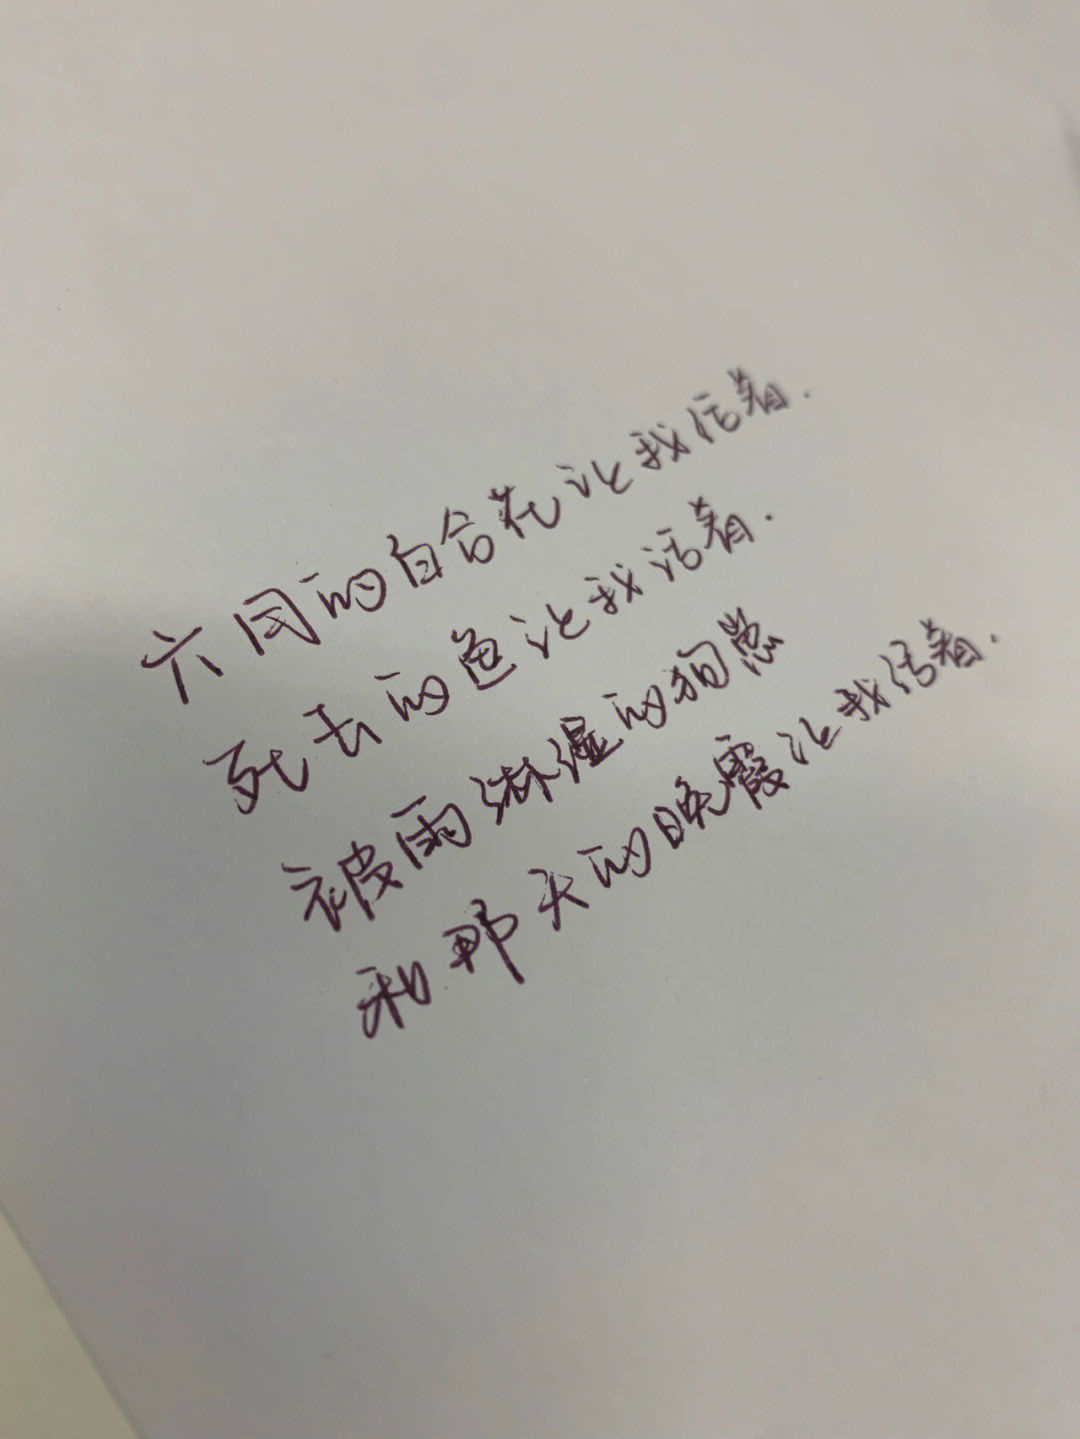 六月的百合花让我活着.
死去的鱼让我活着.
被雨淋湿的狗崽
和那天的晚霞让我活着.